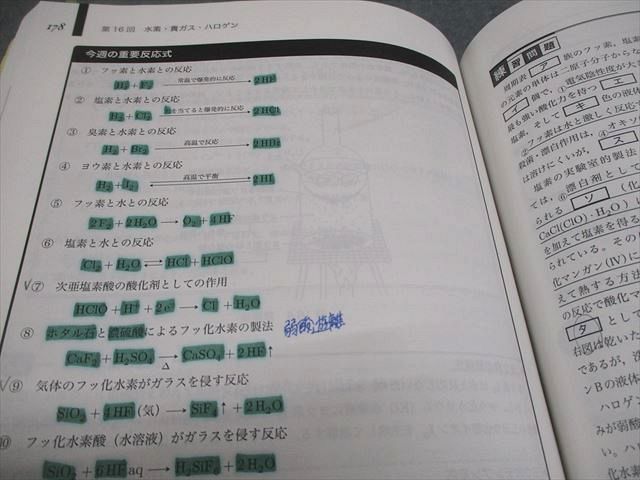 178
第16回 水素・貴ガス・ハロゲン
今週の重要反応式
① フッ素と水素との反応
H₂+F₂ 常温で爆発的に反応→ 2HF
② 塩素と水素との反応
H₂+Cl₂ 光を当てると爆発的に反応→ 2HCl
③ 臭素と水素との反応
H₂+Br₂ 高温で反応→ 2HBr
④ ヨウ素と水素との反応
H₂+I₂ 高温で平衡⇄ 2HI
⑤ フッ素と水との反応
2F₂+2H₂O → O₂+4HF
⑥ 塩素と水との反応
Cl₂+H₂O ⇄ HCl+HClO
√⑦ 次亜塩素酸の酸化剤としての作用
HClO+H⁺+2e⁻ → Cl⁻+H₂O
⑧ ホタル石と濃硫酸によるフッ化水素の製法 弱酸遊離
CaF₂+H₂SO₄ →Δ CaSO₄+2HF↑
√⑨ 気体のフッ化水素がガラスを侵す反応
SiO₂+4HF(気) → SiF₄↑+2H₂O
⑩ フッ化水素酸（水溶液）がガラスを侵す反応
SiO₂+6HFaq → H₂SiF₆+2H₂O
練習問題
周期表 ア 族のフッ素，塩素
の元素の単体は二原子分子からな
イ 個で，①電気陰性度が大
最も強い酸化力を持つ エ
塩素，そして キ 色の液体
②フッ素は水と激しく反応
殺菌・漂白作用は，④オキソ
は溶けにくいが， ス
塩素の実験室的製法
ては，⑥漂白剤として
られる ソ （化
CaCl(ClO)・H₂O）に
を加えて塩素を得る
られている。その
化マンガン(Ⅳ)に
えて熱する方法
の反応で酸化マ
タ として
右図は乾いた
であるが，洗
ンBの液体
ハロゲン
みが弱酸
い。ハ
化水素